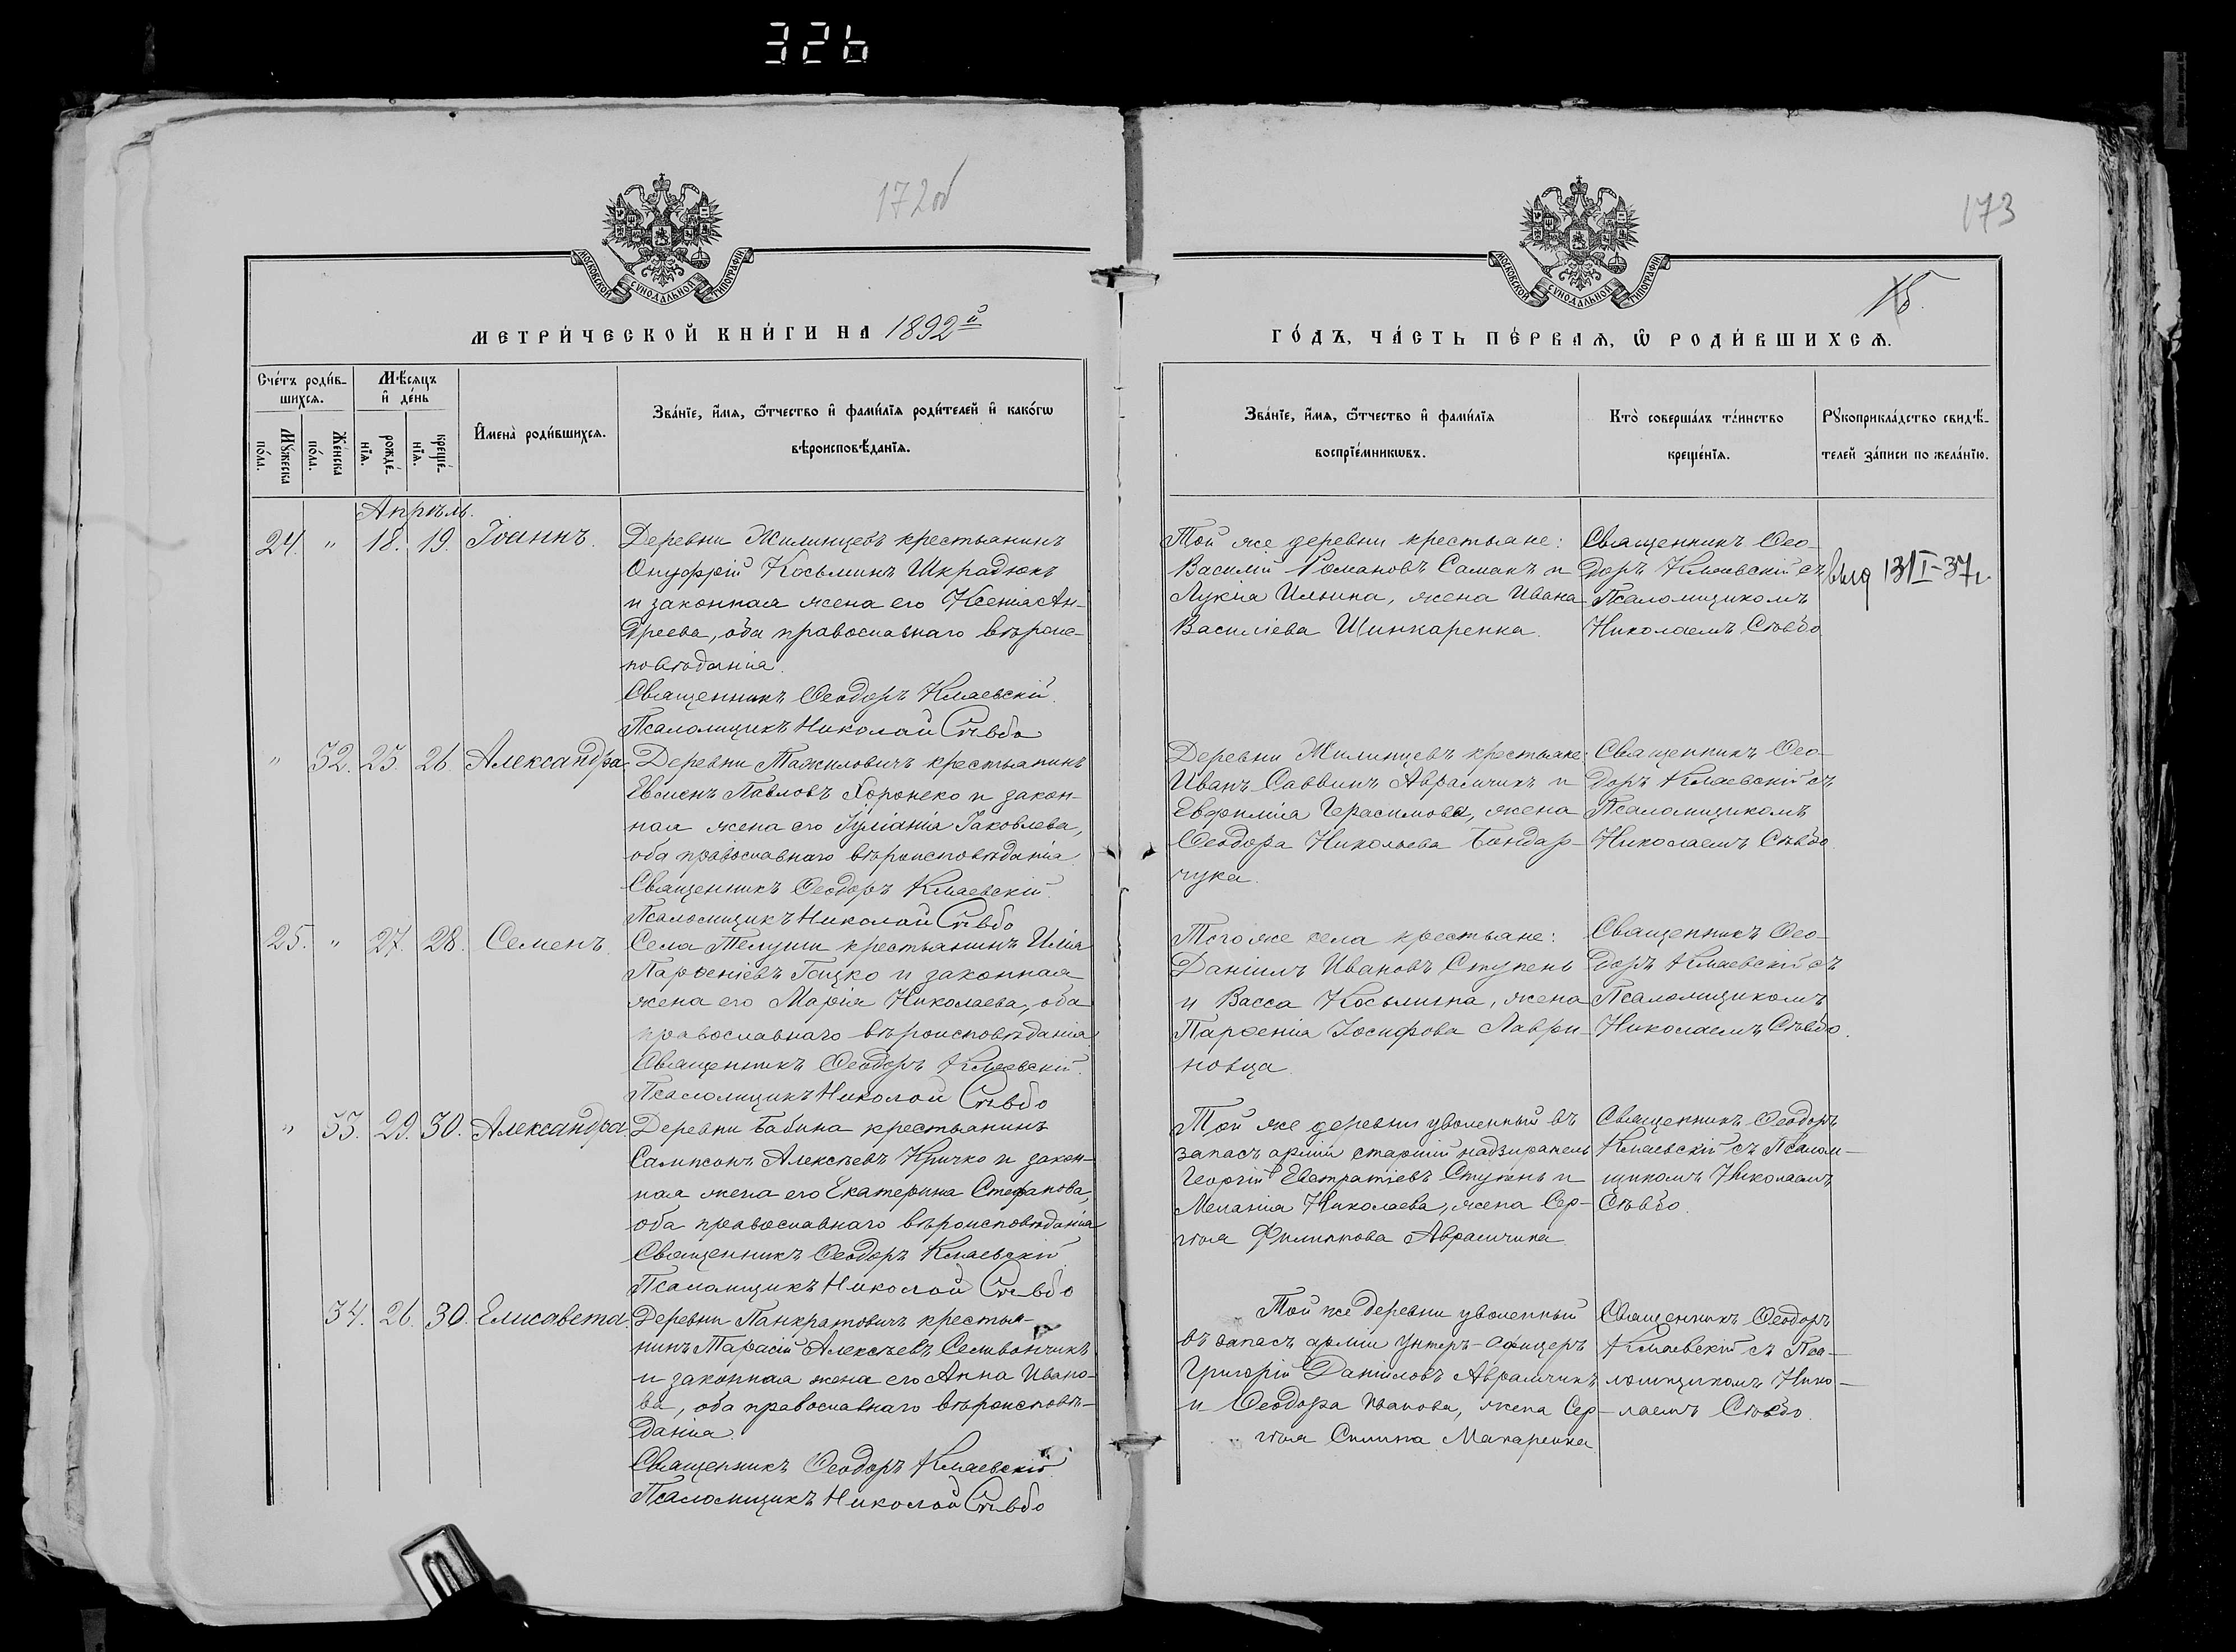 326
172об
МОСКОВСКОЙ СѴНОДАЛЬНОЙ ТИПОГРАФІИ
МЕТРИ́ЧЕСКОЙ КНИ́ГИ НА 1892й
Сче́тъ роди́в-
шихсѧ.
Мѣ́сѧцъ
и҆ де́нь
Мꙋ́жеска
по́ла.
Же́нска
по́ла.
рожде́-
нїѧ.
креще́-
нїѧ.
И҆мена̀ роди́вшихсѧ.
Зва́нїе, и҆́мѧ, ѻ҆́тчество и҆ фами́лїѧ роди́телей и҆ како́гѡ
вѣроисповѣ́данїѧ.
Апрѣль.
24. " 18. 19. Іоаннъ.
Деревни Жилинцевъ крестьянинъ
Онуфрій Косьминъ Шкрадюкъ
и законная жена его Ксенія Ан-
дреева, оба православнаго вѣроис-
повѣданія.
Священникъ Ѳеодоръ Клаевскій.
Псаломщикъ Николай Сѣвбо
" 32. 25. 26. Александра.
Деревни Тажиловичъ крестьянинъ
Евсменъ Павловъ Хоронеко и закон-
ная жена его Іуліанія Іаковлева,
оба православнаго вѣроисповѣданія
Священникъ Ѳеодоръ Клаевскій.
Псаломщикъ Николай Сѣвбо
25. " 27. 28. Семенъ.
Села Телуши крестьянинъ Илія
Парѳеніевъ Гацко и законная
жена его Марія Николаева, оба
православнаго вѣроисповѣданія
Священникъ Ѳеодоръ Клаевскій.
Псаломщикъ Николай Сѣвбо
" 33. 29. 30. Александра.
Деревни Бабина крестьянинъ
Сампсонъ Алексѣевъ Кричко и закон-
ная жена его Екатерина Стефанова,
оба православнаго вѣроисповѣданія
Священникъ Ѳеодоръ Клаевскій
Псаломщикъ Николай Сѣвбо
34. 26. 30. Елисавета.
Деревни Панкратовичъ крестья-
нинъ Тарасій Алексѣевъ Селивончикъ
и законная жена его Анна Ивано-
ва, оба православнаго вѣроисповѣ-
данія.
Священникъ Ѳеодоръ Клаевскій.
Псаломщикъ Николай Сѣвбо
173
МОСКОВСКОЙ СѴНОДАЛЬНОЙ ТИПОГРАФІИ
ГО́ДЪ, ЧА́СТЬ ПЕ́РВАѦ, Ѡ҆ РОДИ́ВШИХСѦ.
Зва́нїе, и҆́мѧ, ѻ҆́тчество и҆ фами́лїѧ
воспрїе́мникѡвъ.
Кто̀ соверша́лъ та́инство
креще́нїѧ.
Рꙋкоприкла́дство свидѣ́-
телей за́писи по жела́нїю.
Той же деревни крестьяне:
Василій Романовъ Самакъ и
Лукія Ильина, жена Ивана
Василіева Шинкаренка.
Священникъ Ѳео-
доръ Клаевскій съ
Псаломщикомъ
Николаемъ Сѣвбо
выд 13/I-37г.
Деревни Жилинцевъ крестьяне:
Иванъ Саввинъ Авраمчикъ и
Евфимія Герасимова, жена
Ѳеодора Николаева Бондар-
чука.
Священникъ Ѳео-
доръ Клаевскій съ
Псаломщикомъ
Николаемъ Сѣвбо
Того же села крестьяне:
Даніилъ Ивановъ Ступень
и Васса Косьмина, жена
Парѳенія Іосифова Лаври-
новца.
Священникъ Ѳео-
доръ Клаевскій съ
Псаломщикомъ
Николаемъ Сѣвбо.
Той же деревни уволенный въ
запасъ арміи старшій надзиратель
Георгій Евстратіевъ Ступень и
Меланія Николаева, жена Сер-
гія Филиппова Аврамчика
Священникъ Ѳеодоръ
Клаевскій съ Псалом-
щикомъ Николаемъ
Сѣвбо.
Той же деревни уволенный
въ запасъ арміи унтеръ-офицеръ
Григорій Даніиловъ Аврамчикъ
и Ѳеодора Иванова, жена Сер-
гія Силина Макаренка.
Священникъ Ѳеодоръ
Клаевскій съ Пса-
ломщикомъ Нико-
лаемъ Сѣвбо.